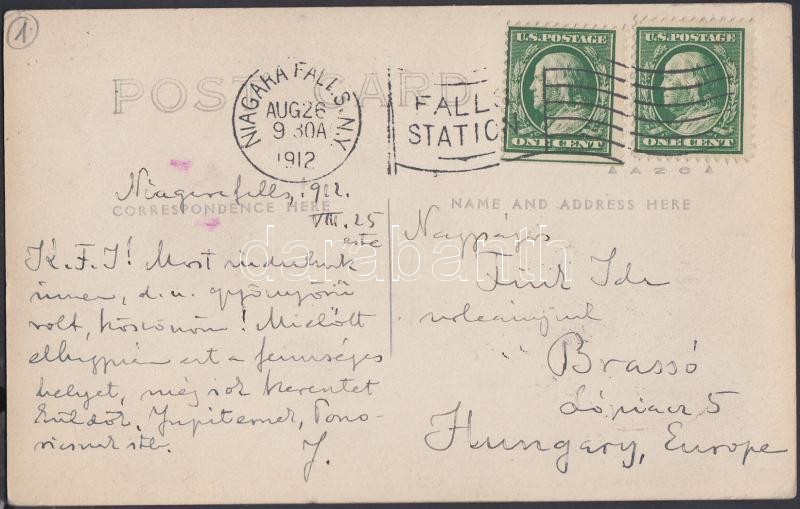 1
POST CARD
NIAGARA FALLS, N.Y.
AUG 26
9 30A
1912
FALLS
STATION
U.S. POSTAGE
ONE CENT
U.S. POSTAGE
ONE CENT
AZO
CORRESPONDENCE HERE
NAME AND ADDRESS HERE
Niagarafalls, 912.
VIII. 25
este
K. F. I! Most indulunk
innen, d. u. gyönyörű
volt, köszönöm! Mielőtt
ezt a fenséges
helyet, még sok
küldök, Jupiternek,
stb.
J.
Nagyságos
Fink Ida
Brassó
Lópiacz 5
Hungary, Europe
darabanth